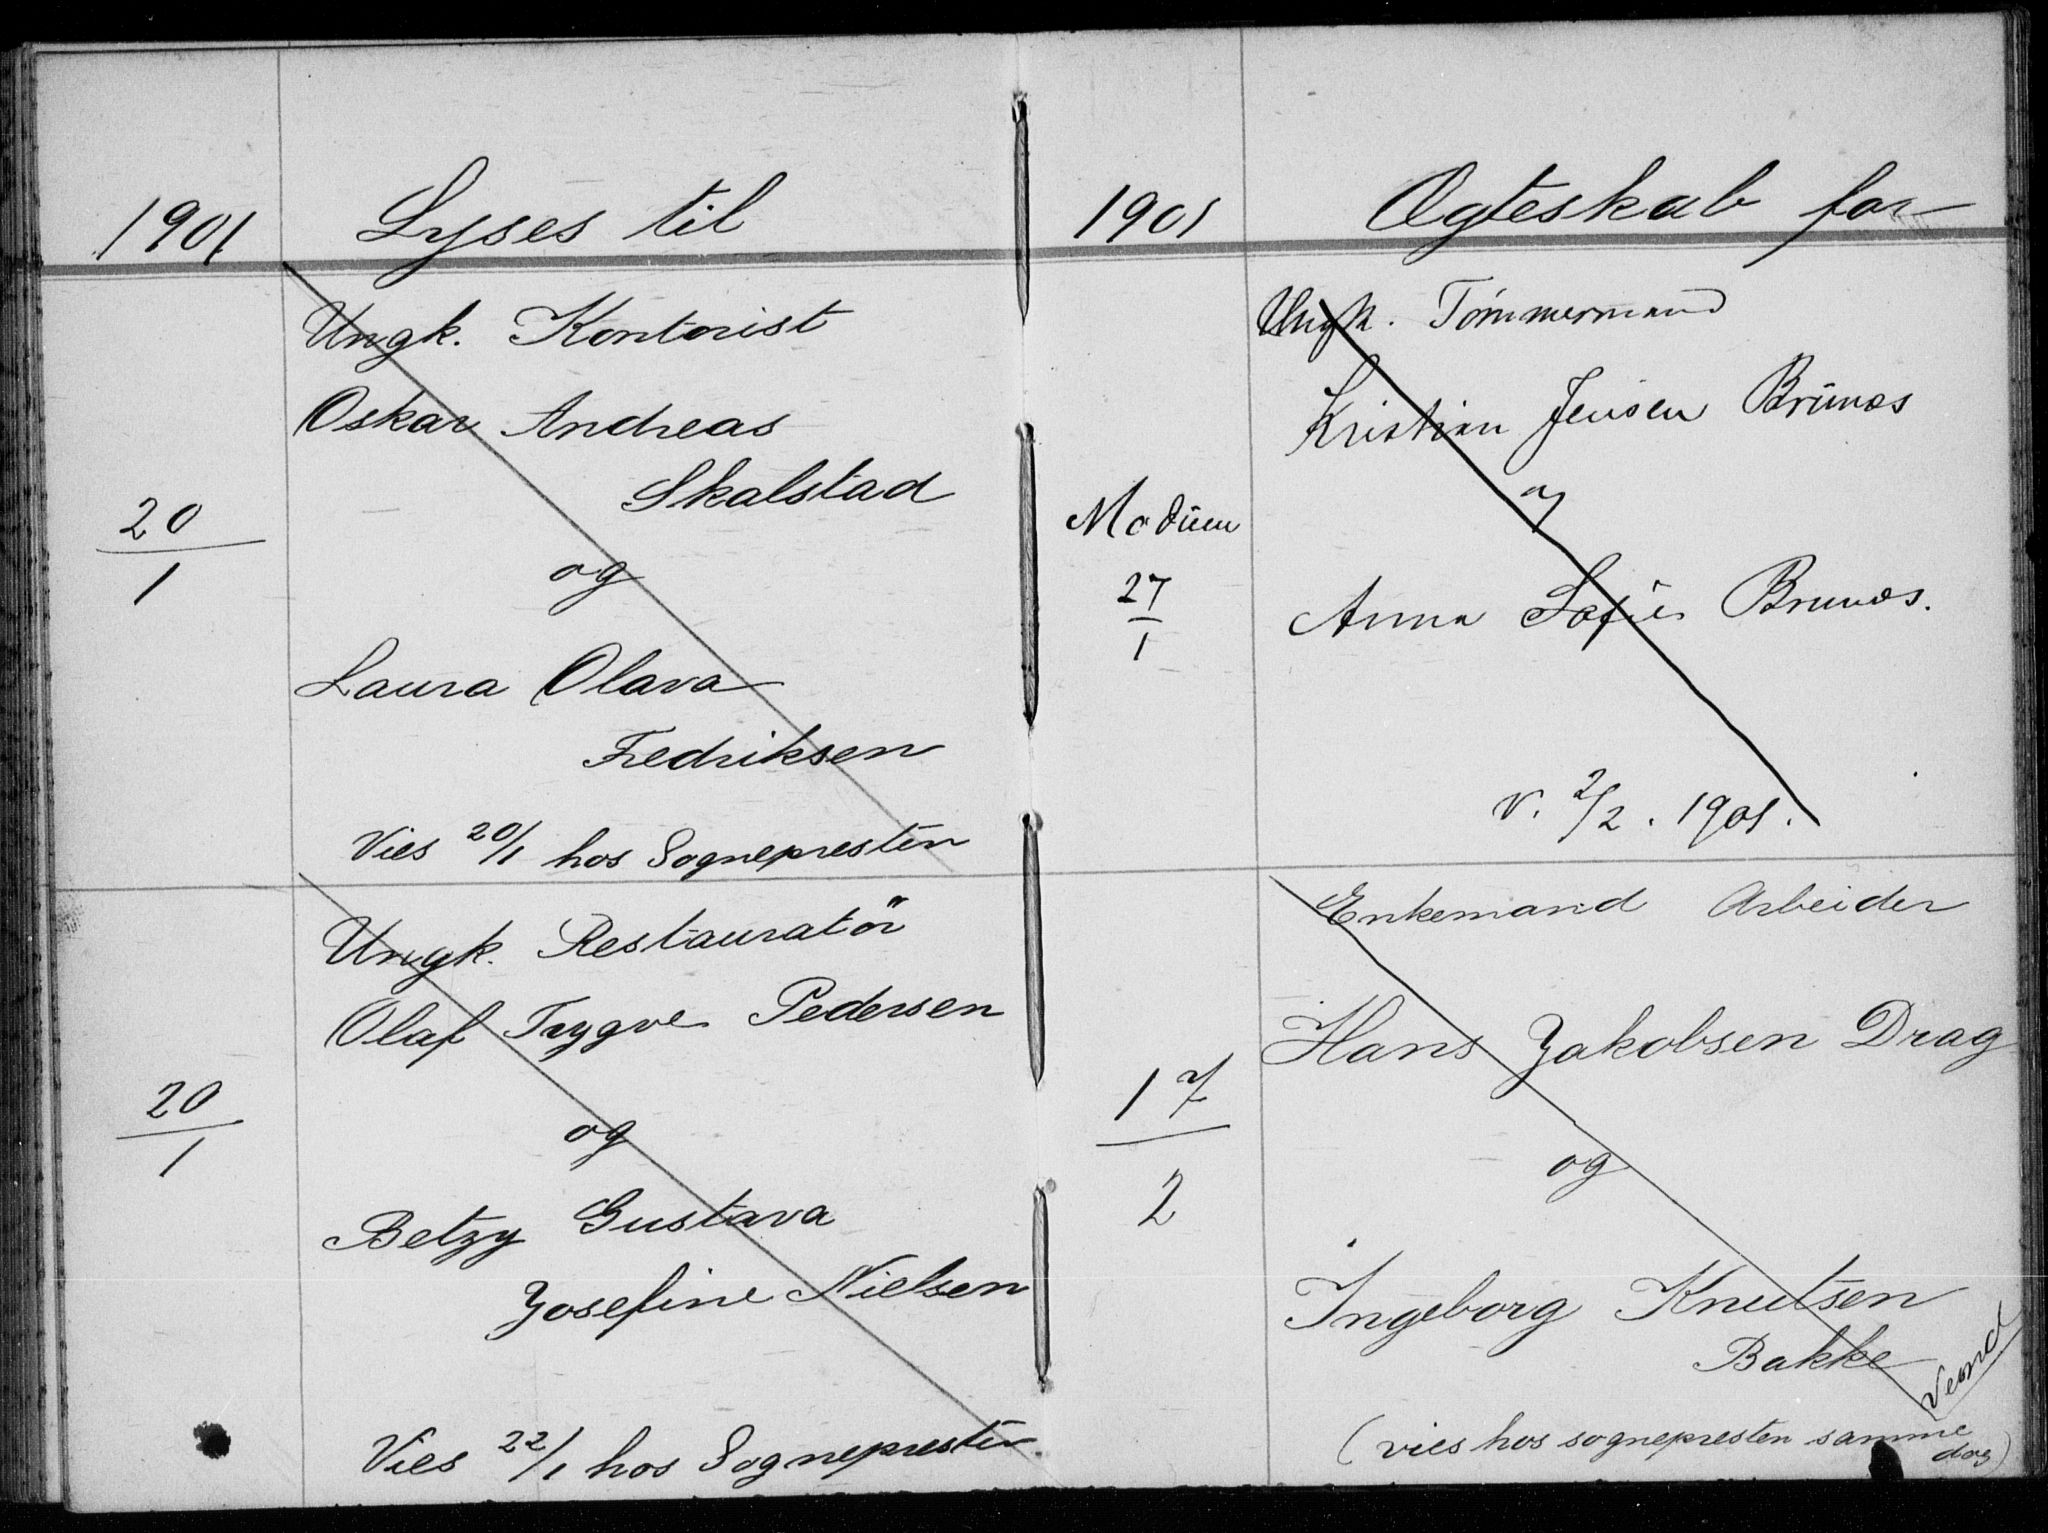 1901 Lyses til
Ungk. Kontorist
Oskar Andreas
Skalstad
20/1
og
Laura Olava
Fredriksen
Vies 20/1 hos Sognepresten
Ungk. Restauratör
Olaf Trygve Pedersen
20/1
og
Betzy Gustava
Josefine Nielsen
Vies 22/1 hos Sognepresten
1901 Ægteskab for
Ungk. Tømmermand
Kristian Jensen Brunæs
Modum
27/1
og
Anna Sofie Brunæs.
V. 2/2. 1901.
Enkemand Arbeider
Hans Jakobsen Drag
17/2
og
Ingeborg Knutsen
Bakke
Vend
(vies hos sognepresten samme
dag)